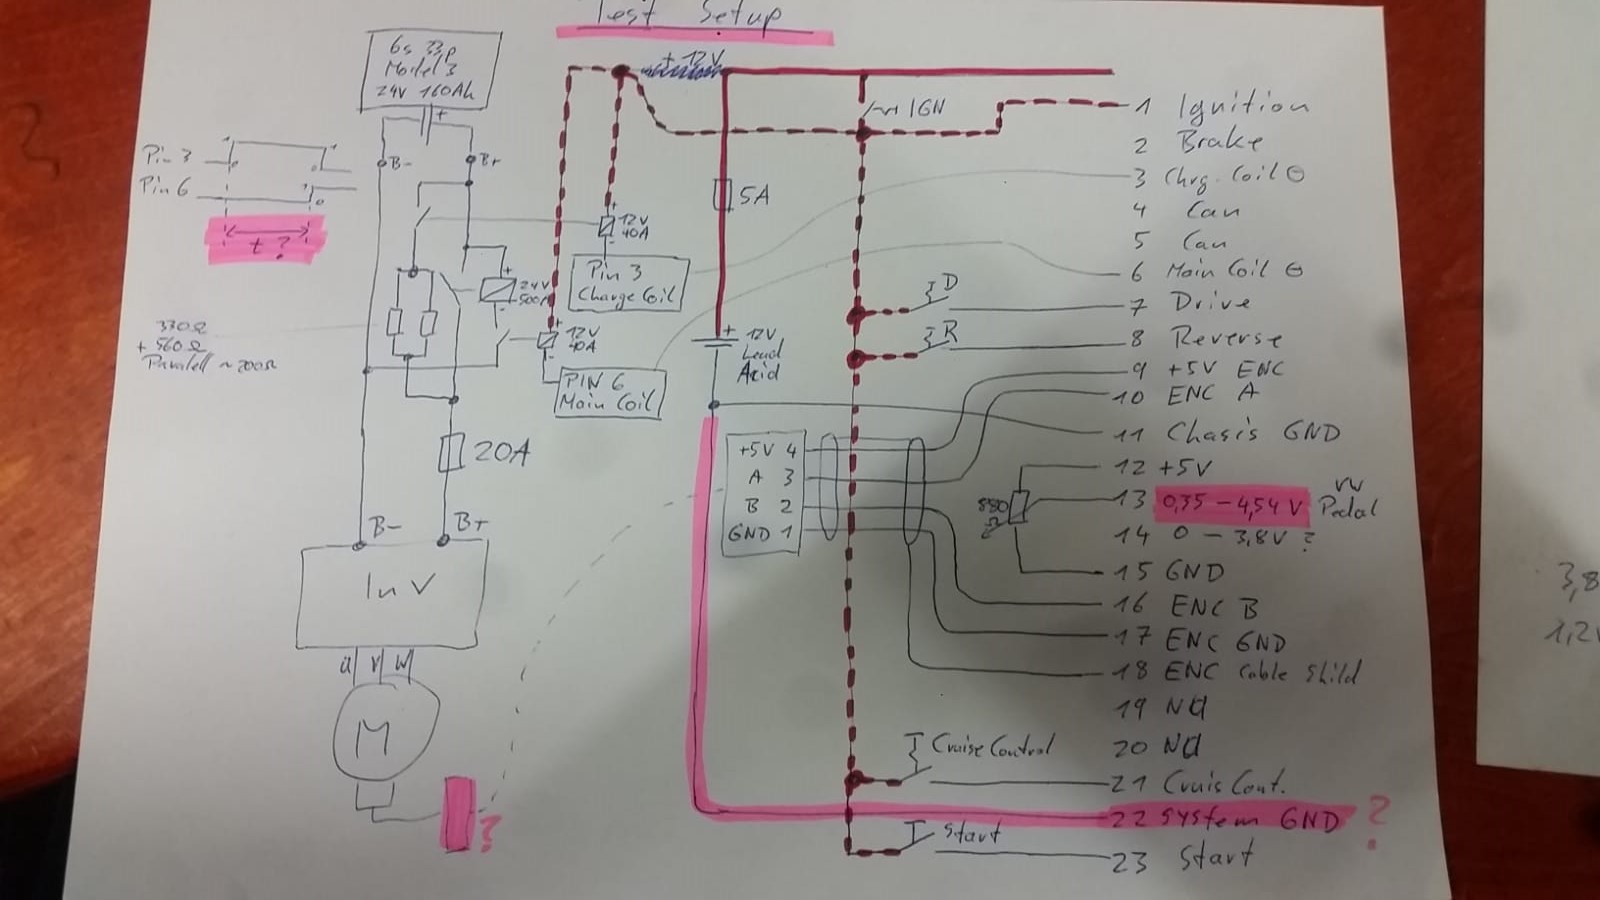 Test Setup
6s 33p
Model 3
24V 160Ah
+
B-
B+
Pin 3
Pin 6
t?
330Ω
+ 560Ω
Parallell ~200Ω
+ 12V
IGN
5A
12V
40A
Pin 3
Charge Coil
24V
12V
40A
PIN 6
Main Coil
+ 12V
Lead
Acid
20A
B-
B+
InV
U V W
M
?
+5V 4
A 3
B 2
GND 1
D
R
880
Cruise Control
Start
1 Ignition
2 Brake
3 Chrg. Coil ⊖
4 Can
5 Can
6 Main Coil ⊖
7 Drive
8 Reverse
9 +5V ENC
10 ENC A
11 Chasis GND
12 +5V
13 0,35 - 4,54 V VW Pedal
14 0 - 3,8V ?
15 GND
16 ENC B
17 ENC GND
18 ENC Cable Shild
19
20
21 Cruis Cont.
22 System GND ?
23 Start
3,8
1,2V